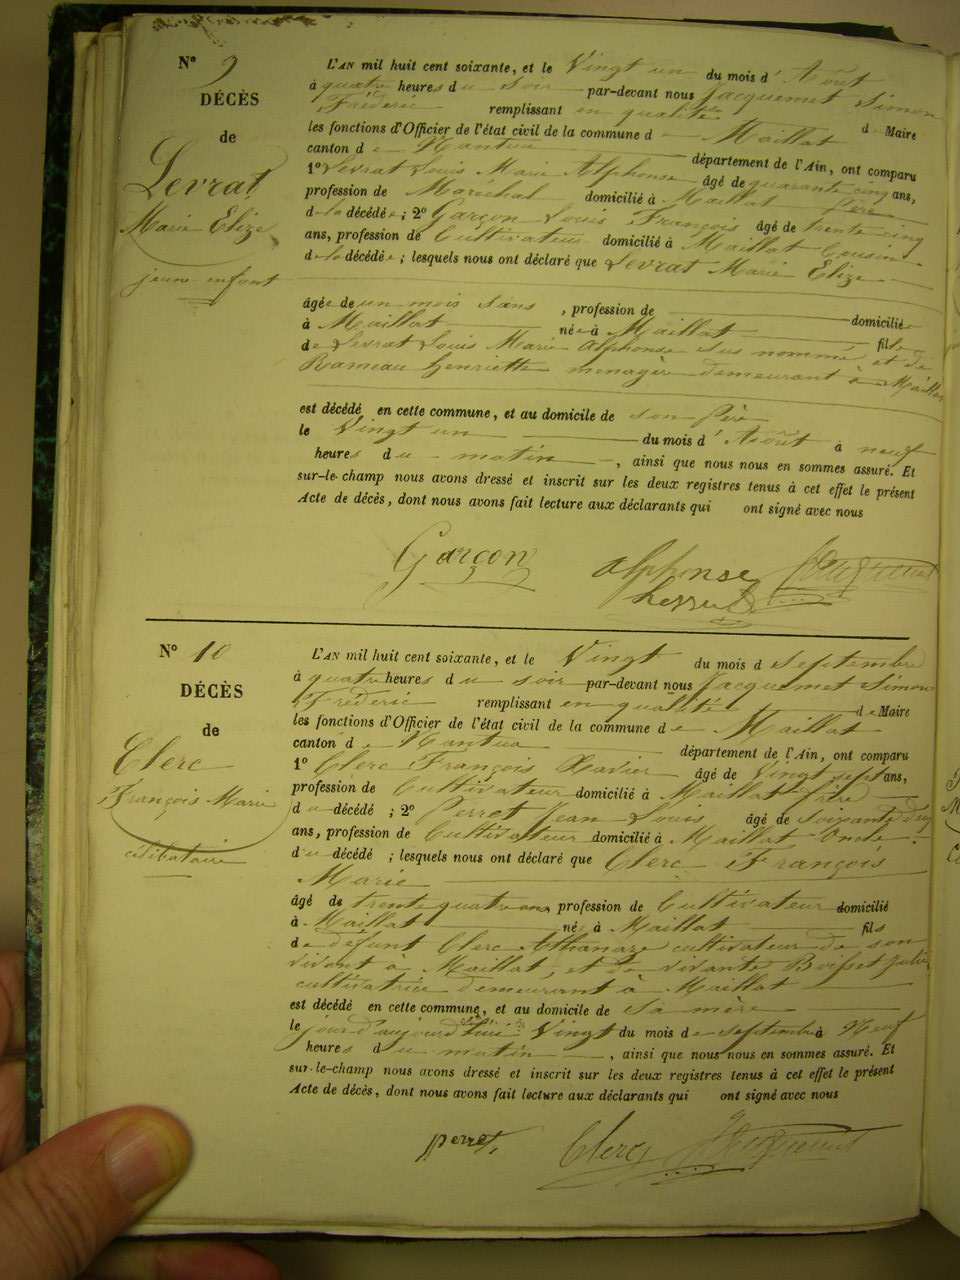 N° 9
DÉCÈS
de
Levrat
Marie Elize
jeune enfant
L'AN mil huit cent soixante, et le Vingt un du mois d'Août
à quatre heures du soir par-devant nous Jacquemet Simon
Fréderic remplissant en qualité de Maire
les fonctions d'Officier de l'état civil de la commune de Maillat
canton de Nantua département de l'Ain, ont comparu
1° Levrat Louis Marie Alphonse âgé de quarante cinq ans,
profession de Maréchal domicilié à Maillat Père
de la décédée ; 2° Garçon Louis François âgé de trente cinq
ans, profession de Cultivateur domicilié à Maillat Cousin
de la décédée ; lesquels nous ont déclaré que Levrat Marie Elize
âgée de un mois sans , profession de domiciliée
à Maillat née à Maillat fille
de Levrat Louis Marie Alphonse sus nommé et de
Rameau henriette menagère demeurant à Maillat
est décédé en cette commune, et au domicile de son Père
le Vingt un du mois d'Août à neuf
heures du matin , ainsi que nous nous en sommes assuré. Et
sur-le-champ nous avons dressé et inscrit sur les deux registres tenus à cet effet le présent
Acte de décès, dont nous avons fait lecture aux déclarants qui ont signé avec nous
Garçon alphonse Jacquemet
N° 10
DÉCÈS
de
Clerc
François Marie
célibataire
L'AN mil huit cent soixante, et le Vingt du mois de Septembre
à quatre heures du soir par-devant nous Jacquemet Simon
Fréderic remplissant en qualité de Maire
les fonctions d'Officier de l'état civil de la commune de Maillat
canton de Nantua département de l'Ain, ont comparu
1° Clerc François Xavier âgé de Vingt sept ans,
profession de Cultivateur domicilié à Maillat frère
du décédé ; 2° Perret Jean Louis âgé de soixante dix
ans, profession de Cultivateur domicilié à Maillat Oncle
du décédé ; lesquels nous ont déclaré que Clerc François
Marie
âgé de trente quatre ans profession de Cultivateur domicilié
à Maillat né à Maillat fils
de défunt Clerc Athanaze cultivateur de son
vivant à Maillat, et de vivante
cultivatrice demeurant à Maillat
est décédé en cette commune, et au domicile de sa mère
le jour d'aujourd'hui Vingt du mois de septembre à Neuf
heures du matin , ainsi que nous nous en sommes assuré. Et
sur-le-champ nous avons dressé et inscrit sur les deux registres tenus à cet effet le présent
Acte de décès, dont nous avons fait lecture aux déclarants qui ont signé avec nous
perret Clerc Jacquemet